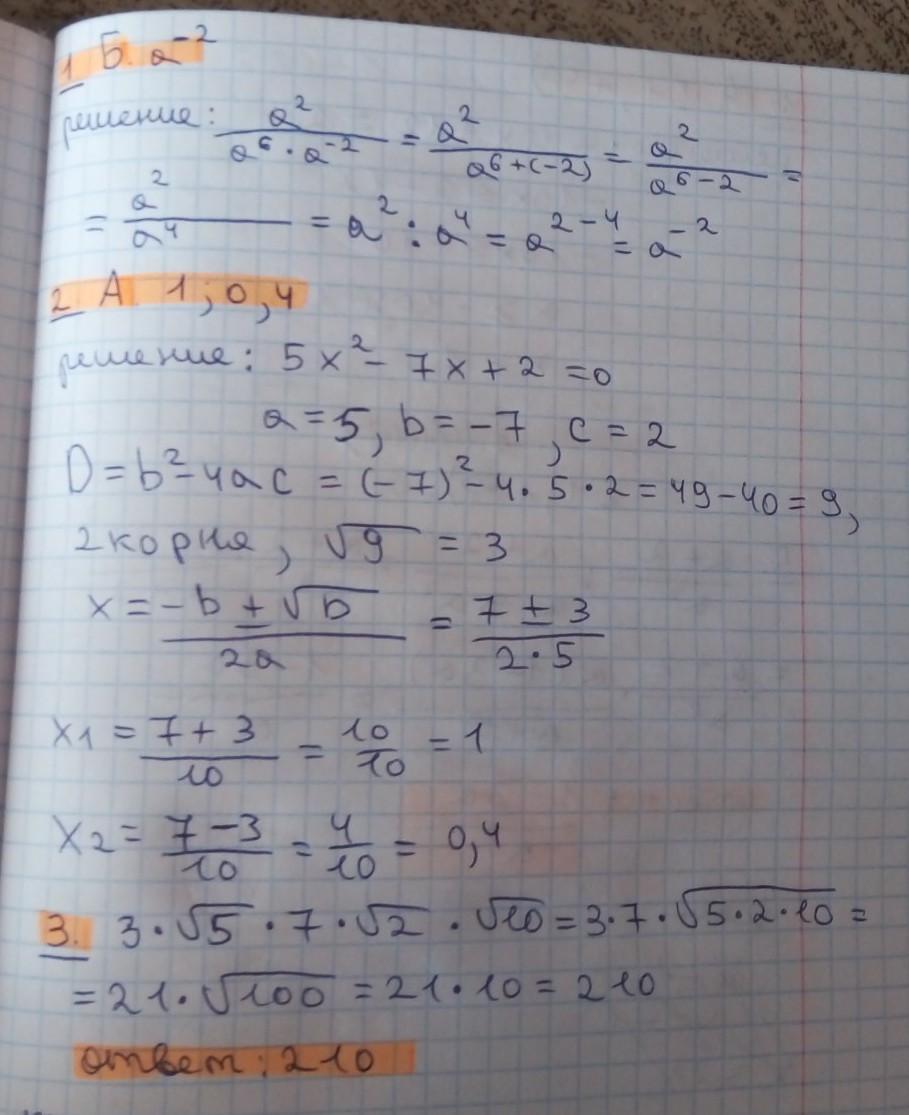 1 Б. a⁻²
решение: a² / (a⁶ · a⁻²) = a² / a⁶⁺⁽⁻²⁾ = a² / a⁶⁻² =
= a² / a⁴ = a² : a⁴ = a²⁻⁴ = a⁻²
2. А. 1 ; 0,4
решение: 5x² - 7x + 2 = 0
a = 5, b = -7, c = 2
D = b² - 4ac = (-7)² - 4 · 5 · 2 = 49 - 40 = 9,
2 корня, √9 = 3
x = (-b ± √D) / 2a = (7 ± 3) / (2 · 5)
x1 = (7 + 3) / 10 = 10 / 10 = 1
x2 = (7 - 3) / 10 = 4 / 10 = 0,4
3. 3 · √5 · 7 · √2 · √10 = 3 · 7 · √(5 · 2 · 10) =
= 21 · √100 = 21 · 10 = 210
ответ: 210